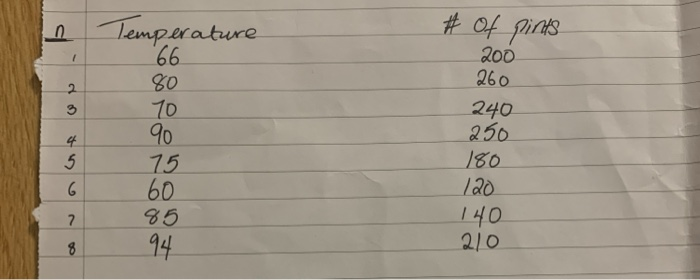 n Temperature # Of pints
1 66 200
2 80 260
3 70 240
4 90 250
5 75 180
6 60 120
7 85 140
8 94 210